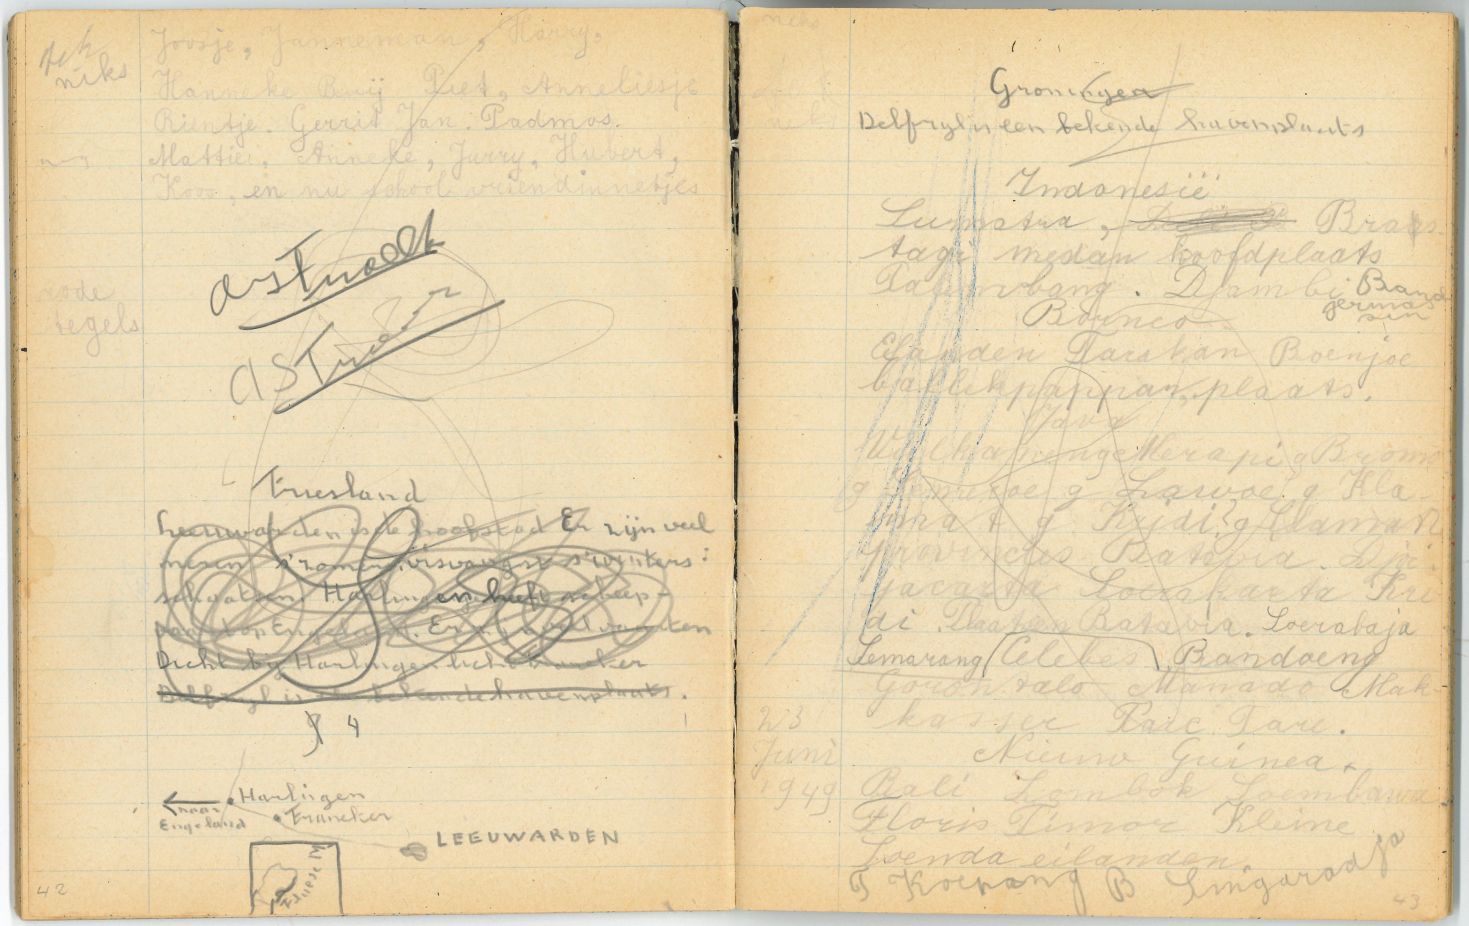 niks
Joosje, Janneman, Harry,
Hanneke Piet, Anneliesje
Rientje. Gerrit Jan. Padmos.
Mattie, Anneke, Jurry, Hubert,
Koos, en nu school vriendinnetjes
rode
tegels
Friesland
Leeuwarden is de hoofstad Er zijn veel
meren s'zomers visvangst s'winters
schaatsen. Harlingen heeft
Engeland. Er
Dicht bij Harlingen licht Franeker
Delfzyl is de bekende havenplaats.
§ 4
Harlingen
naar
Engeland
Franeker
LEEUWARDEN
42
niks
Groningen
Delfzyl is een bekende havenplaats
Indonesië
Sumatra, Bras
tagi medan hoofdplaats
Palembang. Djambi Band
germas
sin
Borneo
Eilanden Tarakan Boenjoe
ballikpappan, plaats.
Java
Merapi g Bromo
g Semeroe g Lawoe g Kla-
mat g Kijdi? g Slamat
provincies Batavia. Djoc
jacarta Soerakarta Kri
di. Plaatsen Batavia. Soerabaja
Semarang (Celebes) Bandoeng
Gorontalo Manado Mak-
kasser Parc Pare.
23
Juni
1949
Nieuw Guinea.
Bali Lombok Soembawa
Floris Timor Kleine
Soenda eilanden.
T Koepang B Singaradja
43